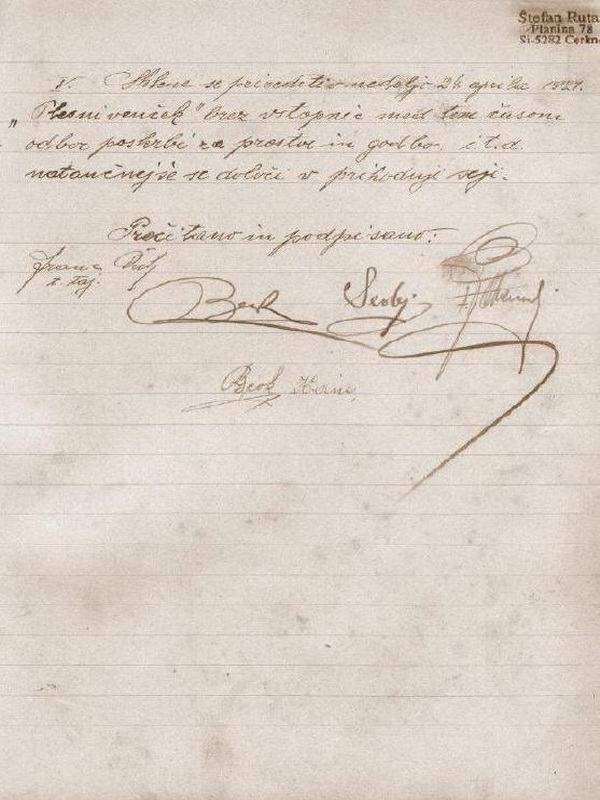 Štefan Rutar
Planina 78
Si-5282 Cerkno
V. Sklene se prirediti v nedeljo 24 aprila 1927.
„Plesni venček" brez vstopnic med tem časom
odbor poskrbi za prostor in godbo, i.t.d.
natančnejše se določi v prihodnji seji.
Prečitano in podpisano:
Franc
t. taj.
Berk Sedej